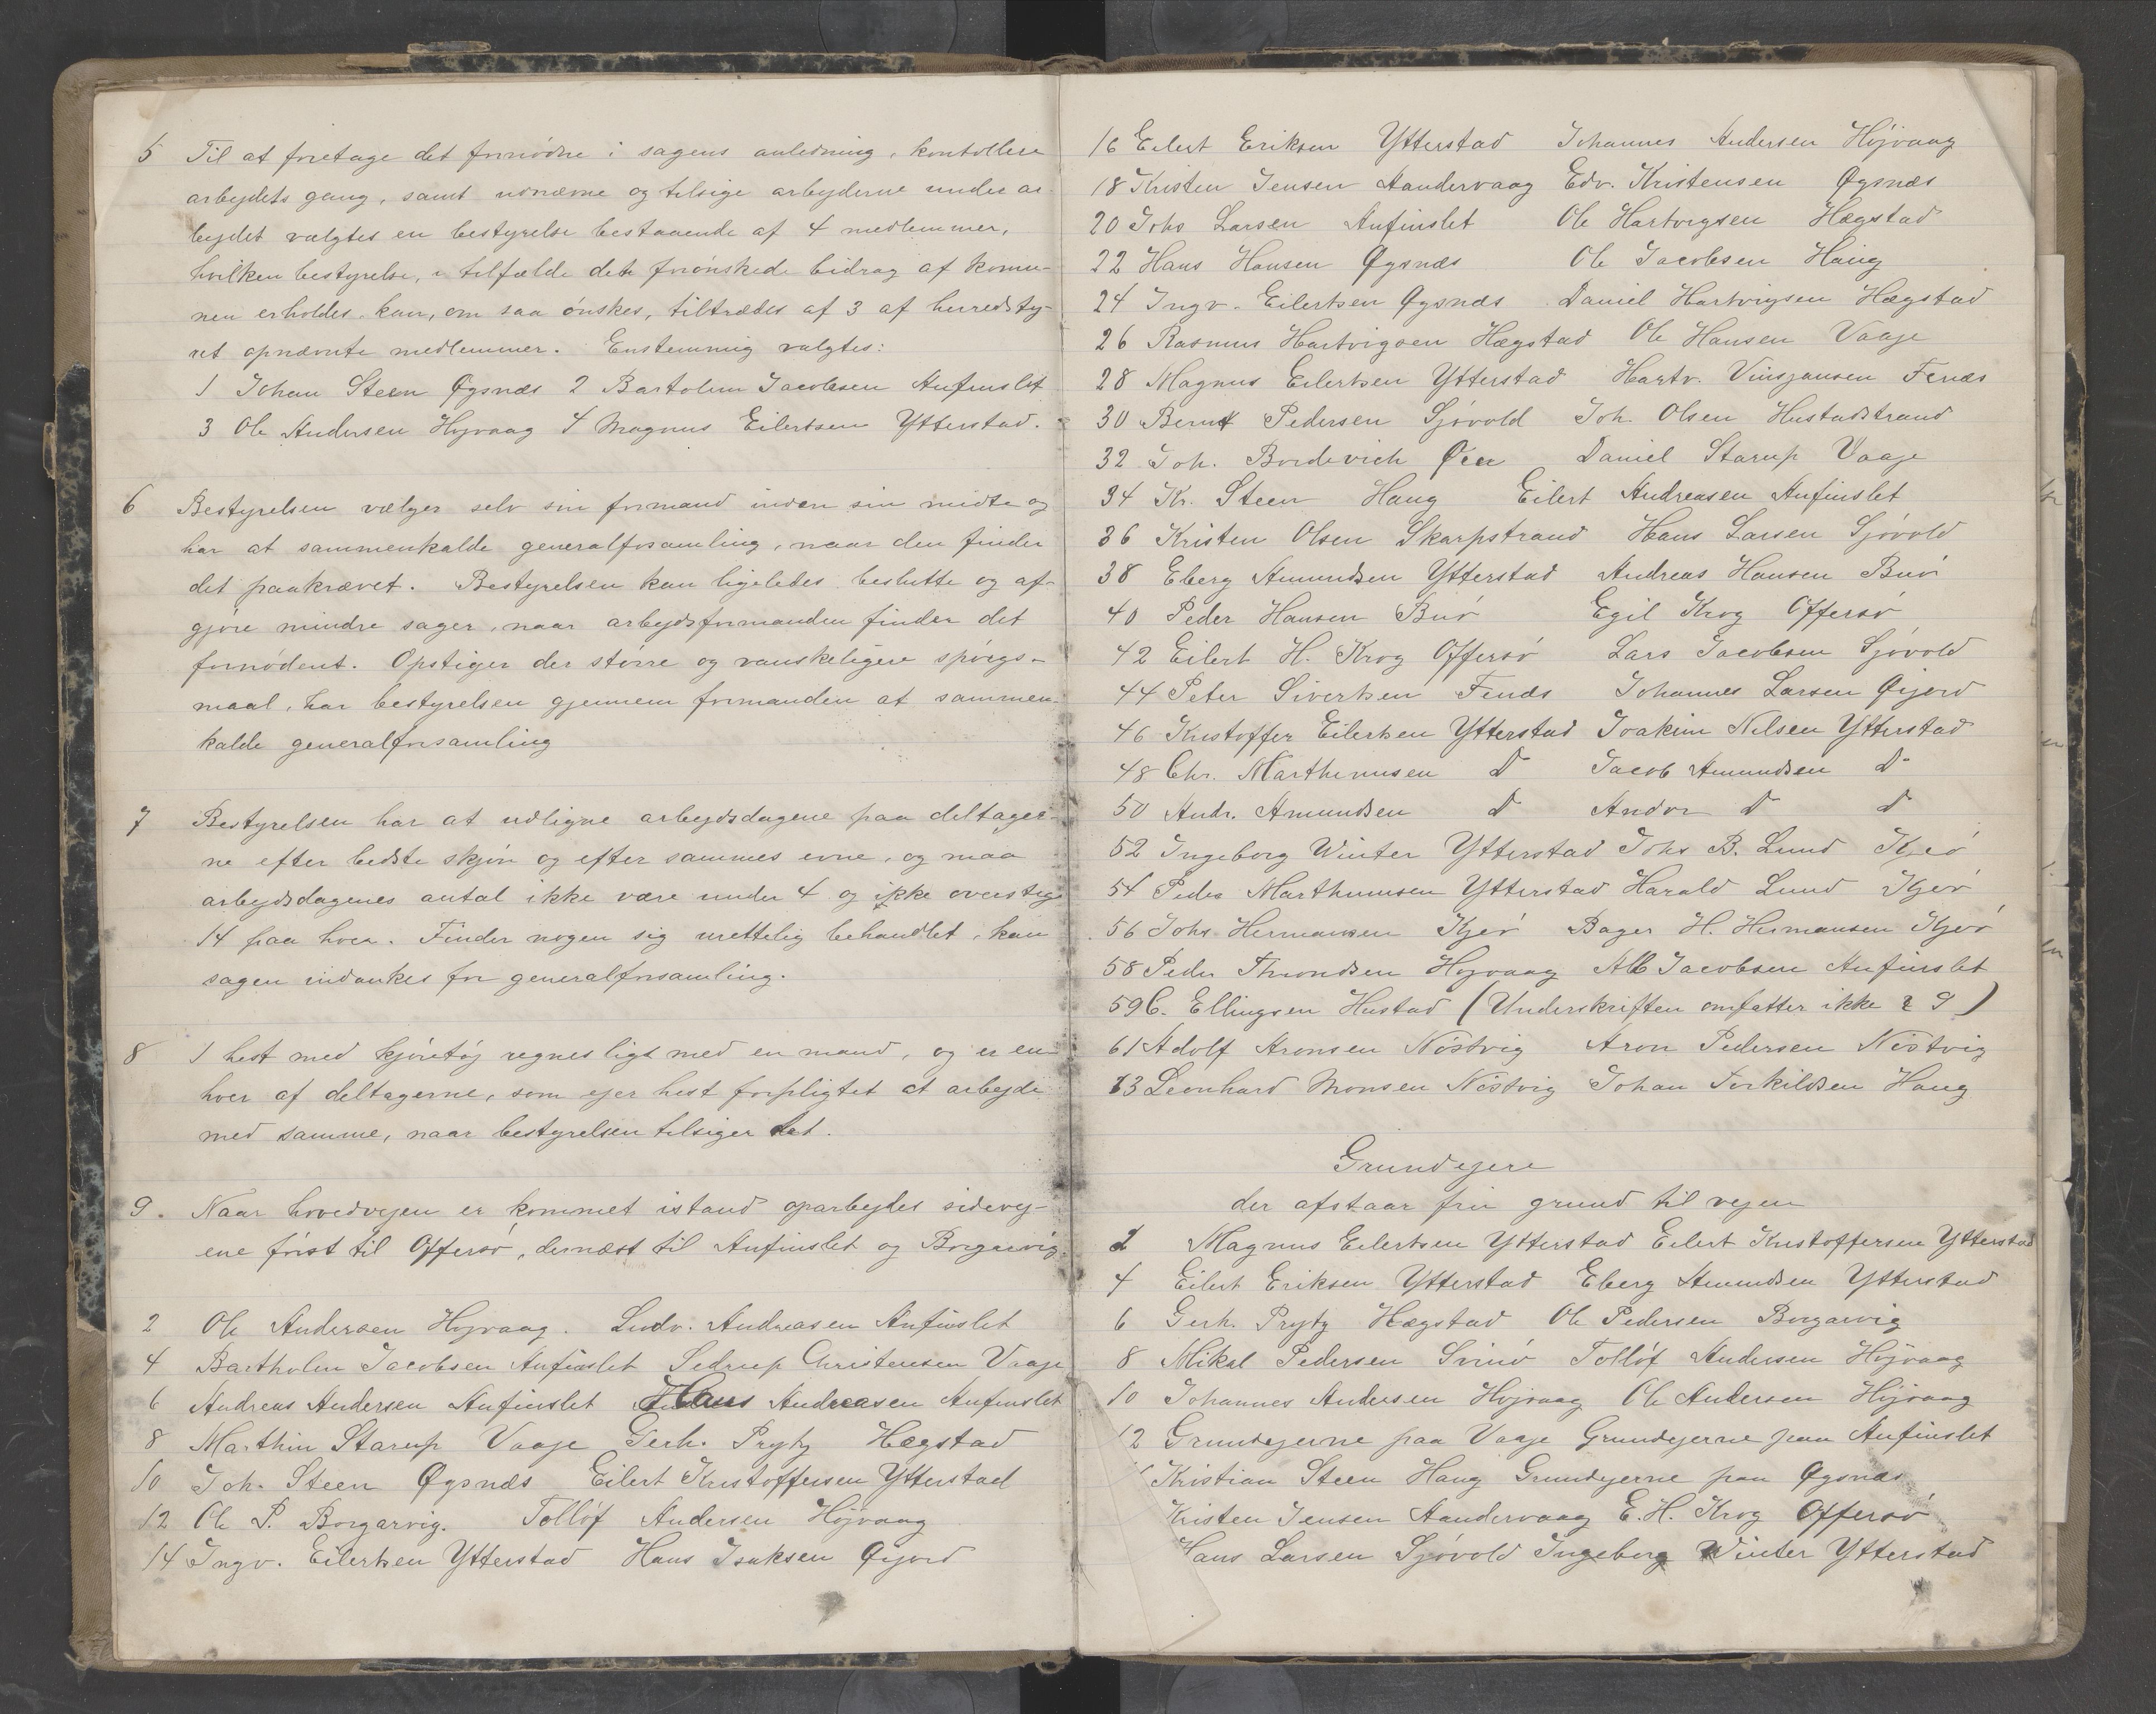 5 Til at foretage det fornødne i sagens anledning, kontrollere
arbejdets gang, samt udnævne og tilsige arbejderne under ar
bejdet vælgtes en bestyrelse bestaaende af 4 medlemmer,
hvilken bestyrelse, i tilfælde det forønskede bidrag af kommu-
nen erholdes, kan, om saa ønskes, tiltrædes af 3 af herredsty-
ret opnævnte medlemmer. Enstemmig valgtes:
1 Johan Steen Øgsnæs 2 Bartolum Jacobsen Anfinslet
3 Ole Andersen Hojvaag 4 Magnus Eilertsen Ytterstad.
6 Bestyrelsen vælger selv sin formand inden sin midte og
har at sammenkalde generalforsamling, naar den finder
det paakrævet. Bestyrelsen kan ligeledes beslutte og af-
gjøre mindre sager, naar arbejdsformanden finder det
fornødent. Opstiger der større og vanskeligere spørgs-
maal, har bestyrelsen gjennem formanden at sammen-
kalde generalforsamling
7 Bestyrelsen har at udligne arbejdsdagene paa deltager-
ne efter bedste skjøn og efter sammes evne, og maa
arbejdsdagenes antal ikke være under 4 og ikke overstige
14 paa hver. Finder nogen sig urettelig behandlet, kan
sagen indankes for generalforsamling.
8 1 hest med kjøretøj regnes ligt med en mand, og er en
hver af deltagerne, som ejer hest forpligtet at arbejde
med samme, naar bestyrelsen tilsiger det.
9. Naar hovedvejen er kommet istand oparbejdes sidevej-
ene først til Offersø, dernæst til Anfinslet og Borgarvig.
2 Ole Andersen Hojvaag. Ludv. Andreasen Anfinslet
4 Bartholm Jacobsen Anfinslet Sedrup Christensen Vaaje
6 Andreas Andersen Anfinslet Hans Andreasen Anfinslet
8 Marthin Starup Vaaje Gerh. Prytz Hægstad
10 Joh. Steen Øgsnæs Eilert Kristoffersen Ytterstad
12 Ole P. Borgarvig. Tolløf Andersen Højvaag
14 Ingv. Eilertsen Ytterstad Hans Isaksen Øijord
16 Eilert Eriksen Ytterstad Johannes Andersen Højvaag
18 Kristen Jensen Aandervaag Edv. Kristensen Øgsnæs
20 Johs Larsen Anfinslet Ole Hartvigsen Hægstad
22 Hans Hansen Øgsnæs Ole Jacobsen Haug
24 Ingv. Eilertsen Øgsnæs Daniel Hartvigsen Hægstad
26 Rasmus Hartvigsen Hægstad Ole Hansen Vaaje
28 Magnus Eilertsen Ytterstad Hartv. Vinsjansen Fenæs
30 Bernt Pedersen Sjøvold Joh. Olsen Hustadstrand
32 Joh. Bordevich Øen Daniel Starup Vaaje
34 Kr. Steen Haug Eilert Andreasen Anfinslet
36 Kristen Olsen Skarpstrand Hans Larsen Sjøvold
38 Eberg Amundsen Ytterstad Andreas Hansen Buø
40 Peder Hansen Buø Egil Krog Offersø
42 Eilert H. Krog Offersø Lars Jacobsen Sjøvold
44 Peter Sivertsen Fenæs Johannes Larsen Øijord
46 Kristoffer Eilertsen Ytterstad Joakim Nilsen Ytterstad
48 Chr. Marthinusen Do Jacob Amundsen Do
50 Andr. Amundsen Do Andor Do Do
52 Ingeborg Winter Ytterstad Johs B. Lund Kjeø
54 Peder Marthinusen Ytterstad Harald Lund Kjeø
56 Johs Hermansen Kjeø Bager H. Hermansen Kjeø
58 Peder Throndsen Hojvaag Alb Jacobsen Anfinslet
59 C. Ellingsen Hustad (Underskriften omfatter ikke 9)
61 Adolf Aronsen Nøstvig Aron Pedersen Nøstvig
63 Leonhard Monsen Nøstvig Johan Torkildsen Haug
Grundejere
der afstaar fri grund til vejen
2 Magnus Eilertsen Ytterstad Eilert Kristoffersen Ytterstad
4 Eilert Eriksen Ytterstad Eberg Amundsen Ytterstad
6 Gerh. Prytz Hægstad Ole Pedersen Borgarvig
8 Mikal Pedersen Svinø Tolløf Andersen Højvaag
10 Johannes Andersen Hojvaag Ole Andersen Højvaag
12 Grundejerne paa Vaaje Grundejerne paa Anfinslet
Kristian Steen Haug Grundejerne paa Øgsnæs
Kristen Jensen Aandervaag E. H. Krog Offersø
Hans Larsen Sjøvold Ingeborg Winter Ytterstad